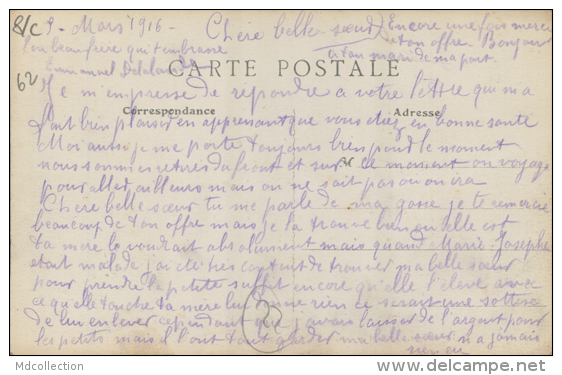 9 - Mars 1916 - Chère belle sœur Encore une fois merci
ton beau frère qui t'embrasse de ton offre Bonjour
Emmanuel Delalande à ton mari de ma part
CARTE POSTALE
62
Je m'empresse de repondre a votre lettre qui m'a
Correspondance Adresse
fait bien plaisir en apprenant que vous étiez en bonne sante
Moi aussi je me porte toujours bien pour le moment
nous sommes retires du front et sur ce moment on voyage
pour aller ailleurs mais on ne sait pas ou on ira
Chère belle sœur tu me parle de ma gosse je te remercie
beaucoup de ton offre mais je la trouve bien ou elle est
ta mere la voudrait absolument mais quand Marie-Josephe
etait malade j'ai ete tres content de trouver ma belle sœur
pour prendre la petite suffit encore qu'elle l'eleve avec
ce qu'elle touche ta mere lui donne rien ce serait une sottise
de lui enlever cependant que j'avais laisser de l'argent pour
les petits mais il l'ont tout garder ma belle sœur n'a jamais
rien eu
Mdcollection
delcampe.net